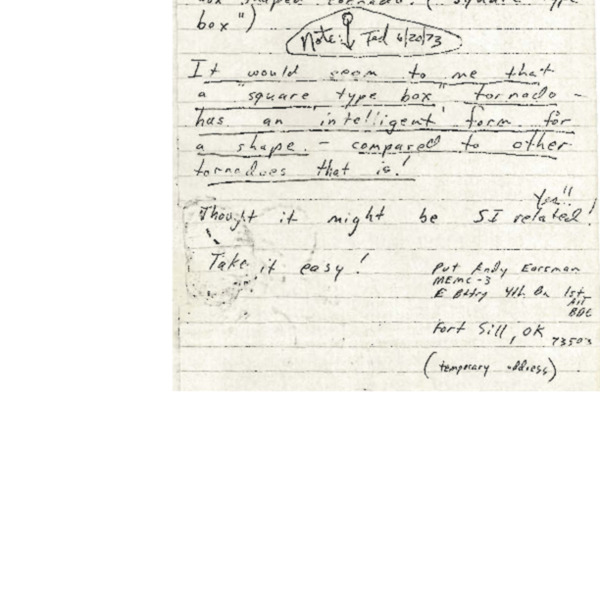 box shaped tornado. ("square type
box")
Note: Ted 6/20/73
It would seem to me that
a "square type box" tornado -
has an 'intelligent' form for
a shape. - compared to other
tornadoes that is!
Yes!!
Thought it might be SI related!
Take it easy!
Put Andy Earsman
MEMC-3
E Battry 4th Bn 1st
AIT
BDE
Fort Sill, OK 73503
(temporary address)